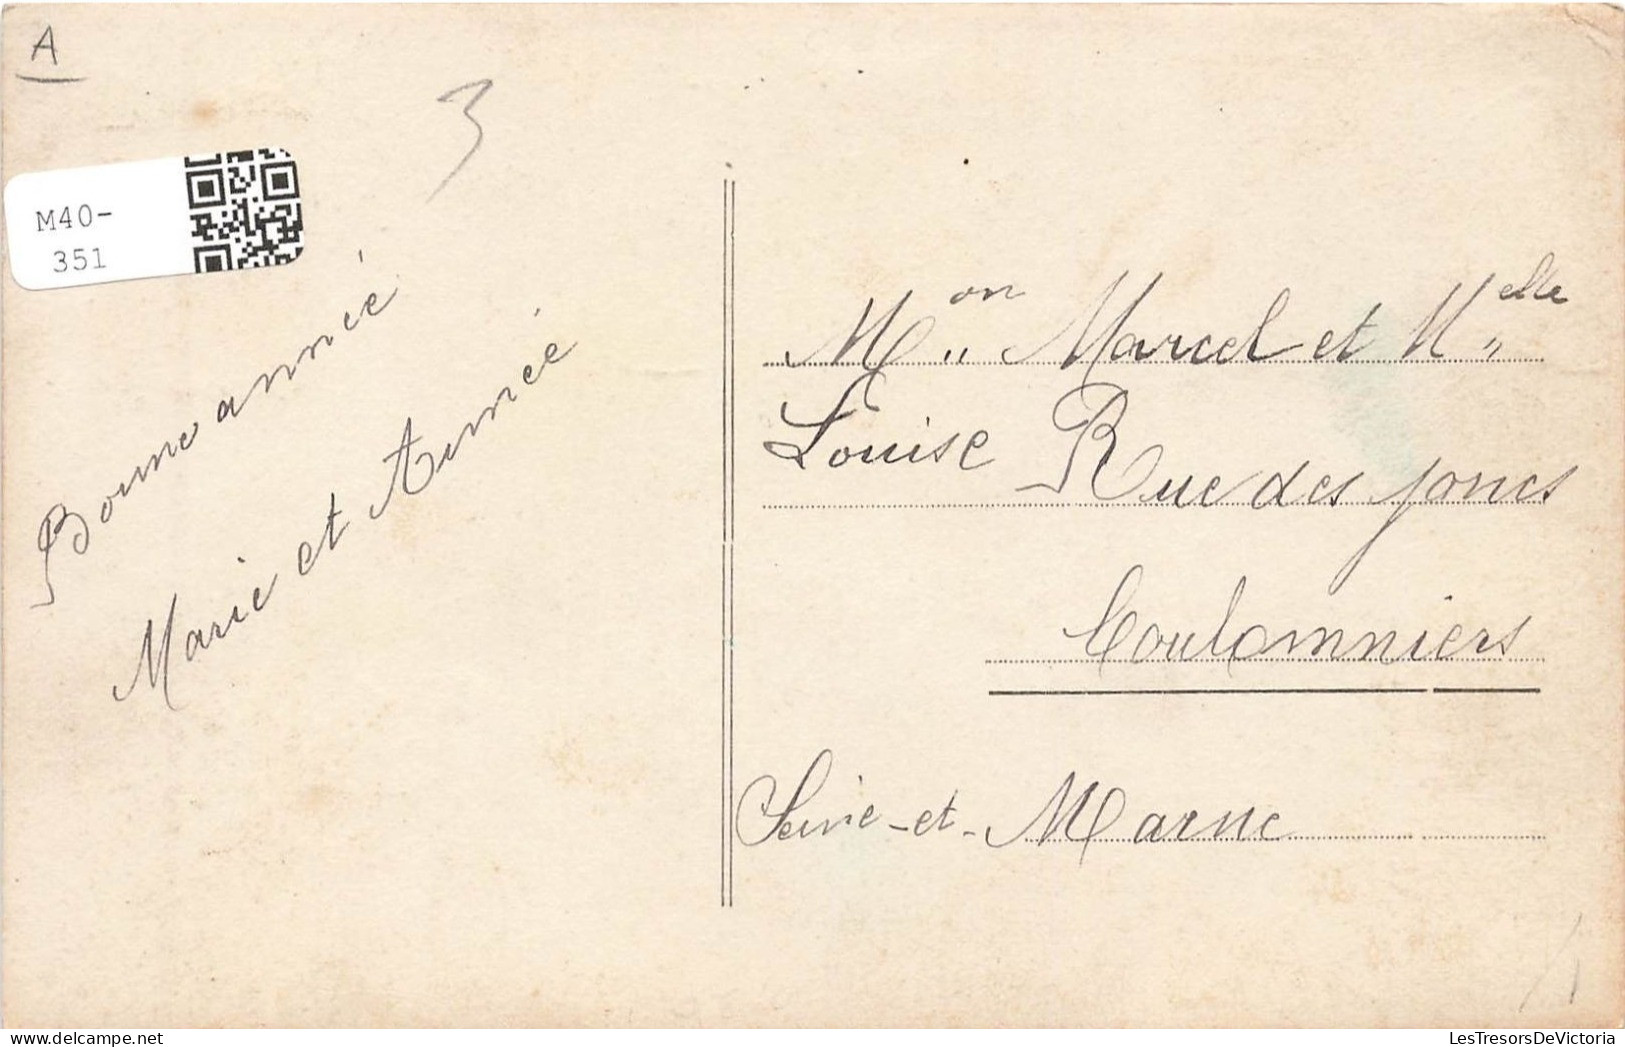 A
3
M40-
351
Bonne année
Marie et Aimée
M^on Marcel et M^elle
Louise Rue des joncs
Coulommiers
Seine-et-Marne
LesTresorsDeVictoria